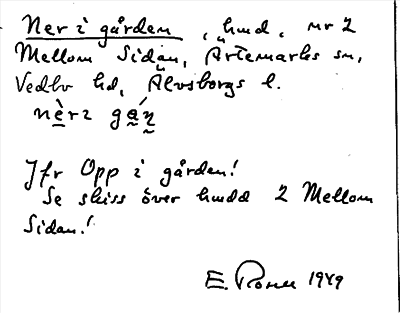 Ner i gården, hmd, nr 2
Mellom Sidan, Ärtemarks sn,
Vedbo hd, Älvsborgs l.
nè̱rɩ ga̰ń̰
Jfr Opp i gården!
Se skiss över hmdd 2 Mellom
Sidan!
E. 1949